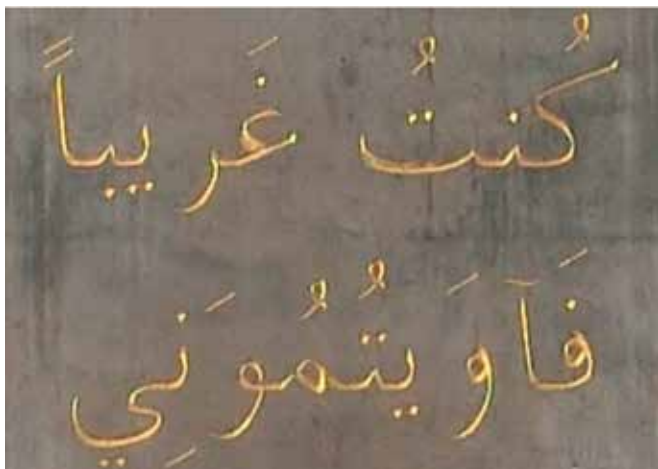 كُنتُ غَريباً
فَآوَيتُمُوَنِي